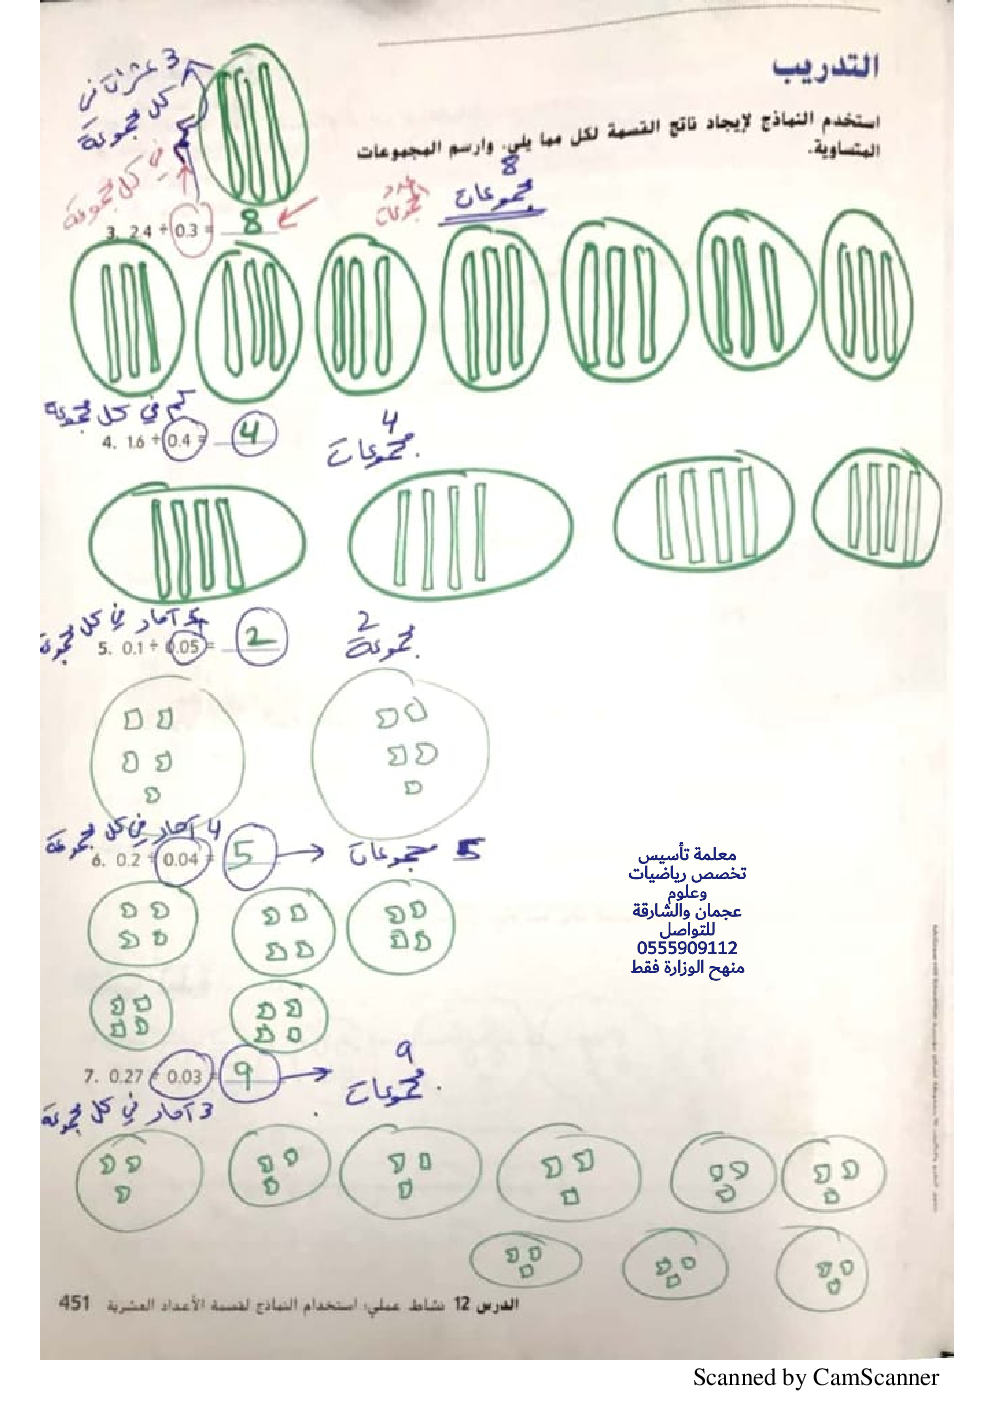 التدريب
استخدم النماذج لإيجاد ناتج القسمة لكل مما يلي. وارسم المجموعات
المتساوية.
3 عشرات في
كل مجموعة
كم في كل مجموعة
عدد
8
مجموعات
3. 2.4 ÷ 0.3 = 8
كم في كل مجموعة
4. 1.6 ÷ 0.4 = 4
4
مجموعات
آحاد في كل مجموعة
5. 0.1 ÷ 0.05 = 2
2
مجموعة
4 آحاد في كل مجموعة
6. 0.2 ÷ 0.04 = 5
5 مجموعات
معلمة تأسيس
تخصص رياضيات
وعلوم
عجمان والشارقة
للتواصل
0555909112
منهج الوزارة فقط
7. 0.27 ÷ 0.03 = 9
9
مجموعات
3 آحاد في كل مجموعة
الدرس 12 نشاط عملي: استخدام النماذج لقسمة الأعداد العشرية 451
Scanned by CamScanner